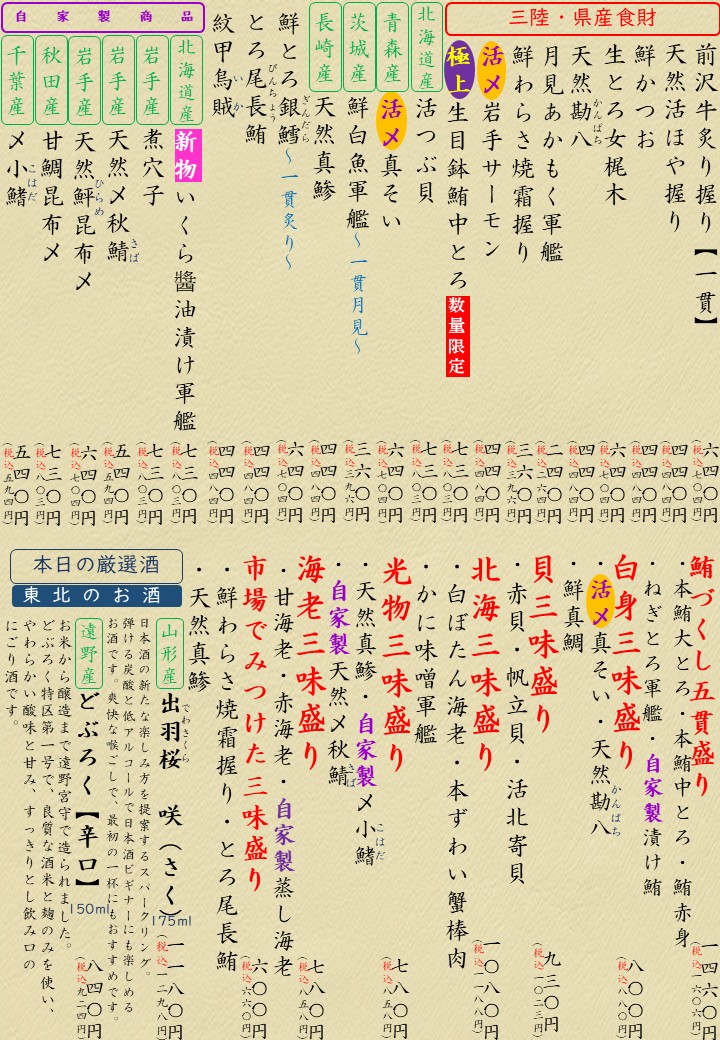 三陸・県産食財
前沢牛炙り握り【一貫】 六四〇円 (税込七〇四円)
天然活ほや握り 四四〇円 (税込四八四円)
鮮かつお 四四〇円 (税込四八四円)
生とろ女梶木 六四〇円 (税込七〇四円)
天然勘八 かんぱち 四四〇円 (税込四八四円)
月見あかもく軍艦 二四〇円 (税込二六四円)
鮮わらさ焼霜握り 三六〇円 (税込三九六円)
活〆岩手サーモン 四四〇円 (税込四八四円)
極上生目鉢鮪中とろ 数量限定 七三〇円 (税込八〇三円)
北海道産 活つぶ貝 七三〇円 (税込八〇三円)
青森産 活〆真そい 六四〇円 (税込七〇四円)
茨城産 鮮白魚軍艦〜一貫月見〜 三六〇円 (税込三九六円)
長崎産 天然真鯵 四四〇円 (税込四八四円)
鮮とろ銀鱈〜一貫炙り〜 ぎんだら 六四〇円 (税込七〇四円)
とろ尾長鮪 びんちょう 四四〇円 (税込四八四円)
紋甲烏賊 いか 四四〇円 (税込四八四円)
自家製商品
北海道産 新物いくら醬油漬け軍艦 七三〇円 (税込八〇三円)
岩手産 煮穴子 七三〇円 (税込八〇三円)
岩手産 天然〆秋鯖 さば 五四〇円 (税込五九四円)
岩手産 天然鮃昆布〆 ひらめ 六四〇円 (税込七〇四円)
秋田産 甘鯛昆布〆 七三〇円 (税込八〇三円)
千葉産 〆小鰭 こはだ 五四〇円 (税込五九四円)
鮪づくし五貫盛り 一四六〇円 (税込一六〇六円)
・本鮪大とろ・本鮪中とろ・鮪赤身
・ねぎとろ軍艦・自家製漬け鮪
白身三味盛り 八〇〇円 (税込八八〇円)
・活〆真そい・天然勘八 かんぱち
・鮮真鯛
貝三味盛り 九三〇円 (税込一〇二三円)
・赤貝・帆立貝・活北寄貝
北海三味盛り 一〇八〇円 (税込一一八八円)
・白ぼたん海老・本ずわい蟹棒肉
・かに味噌軍艦
光物三味盛り 七八〇円 (税込八五八円)
・天然真鯵・自家製〆小鰭 こはだ
・自家製天然〆秋鯖 さば
海老三味盛り 七八〇円 (税込八五八円)
・甘海老・赤海老・自家製蒸し海老
市場でみつけた三味盛り 六〇〇円 (税込六六〇円)
・鮮わらさ焼霜握り・とろ尾長鮪
・天然真鯵
本日の厳選酒
東北のお酒
山形産 出羽桜 咲(さく) でわさくら 175ml 一一八〇円 (税込一二九八円)
日本酒の新たな楽しみ方を提案するスパークリング。
弾ける炭酸と低アルコールで日本酒ビギナーにも楽しめる
お酒です。爽快な喉ごしで、最初の一杯にもおすすめです。
遠野産 どぶろく【辛口】 150ml 八四〇円 (税込九二四円)
お米から醸造まで遠野宮守で造られました。
どぶろく特区第一号で、良質な酒米と麹のみを使い、
やわらかい酸味と甘み、すっきりとし飲み口の
にごり酒です。